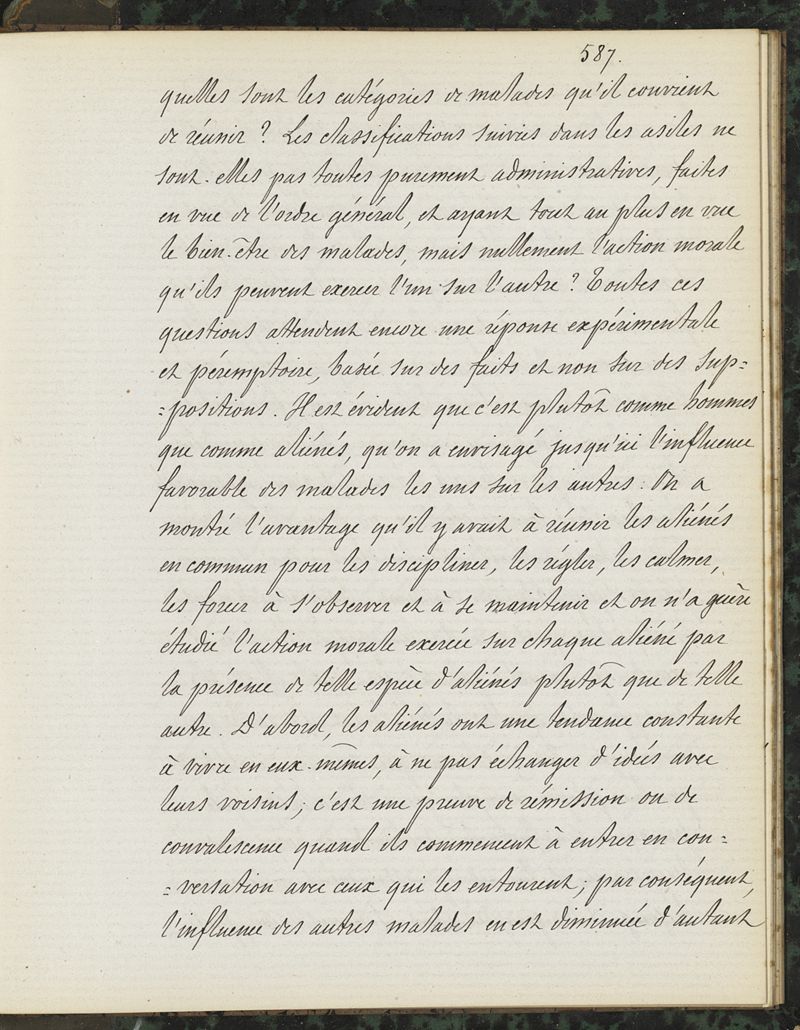 587.
quelles sont les catégories de malades qu'il convient
de réunir ? Les classifications suivies dans les asiles ne
sont-elles pas toutes purement administratives, faites
en vue de l'ordre général, et ayant tout au plus en vue
le bien-être des malades, mais nullement l'action morale
qu'ils peuvent exercer l'un sur l'autre ? Toutes ces
questions attendent encore une réponse expérimentale
et péremptoire, basée sur des faits et non sur des sup=
=positions. Il est évident que c'est plutôt comme hommes
que comme aliénés, qu'on a envisagé jusqu'ici l'influence
favorable des malades les uns sur les autres. On a
montré l'avantage qu'il y avait à réunir les aliénés
en commun pour les discipliner, les régler, les calmer,
les forcer à s'observer et à se maintenir et on n'a guère
étudié l'action morale exercée sur chaque aliéné par
la présence de telle espèce d'aliénés plutôt que de telle
autre. D'abord, les aliénés ont une tendance constante
à vivre en eux-mêmes, à ne pas échanger d'idées avec
leurs voisins; c'est une preuve de rémission ou de
convalescence quand ils commencent à entrer en con=
=versation avec ceux qui les entourent; par conséquent,
l'influence des autres malades en est diminuée d'autant